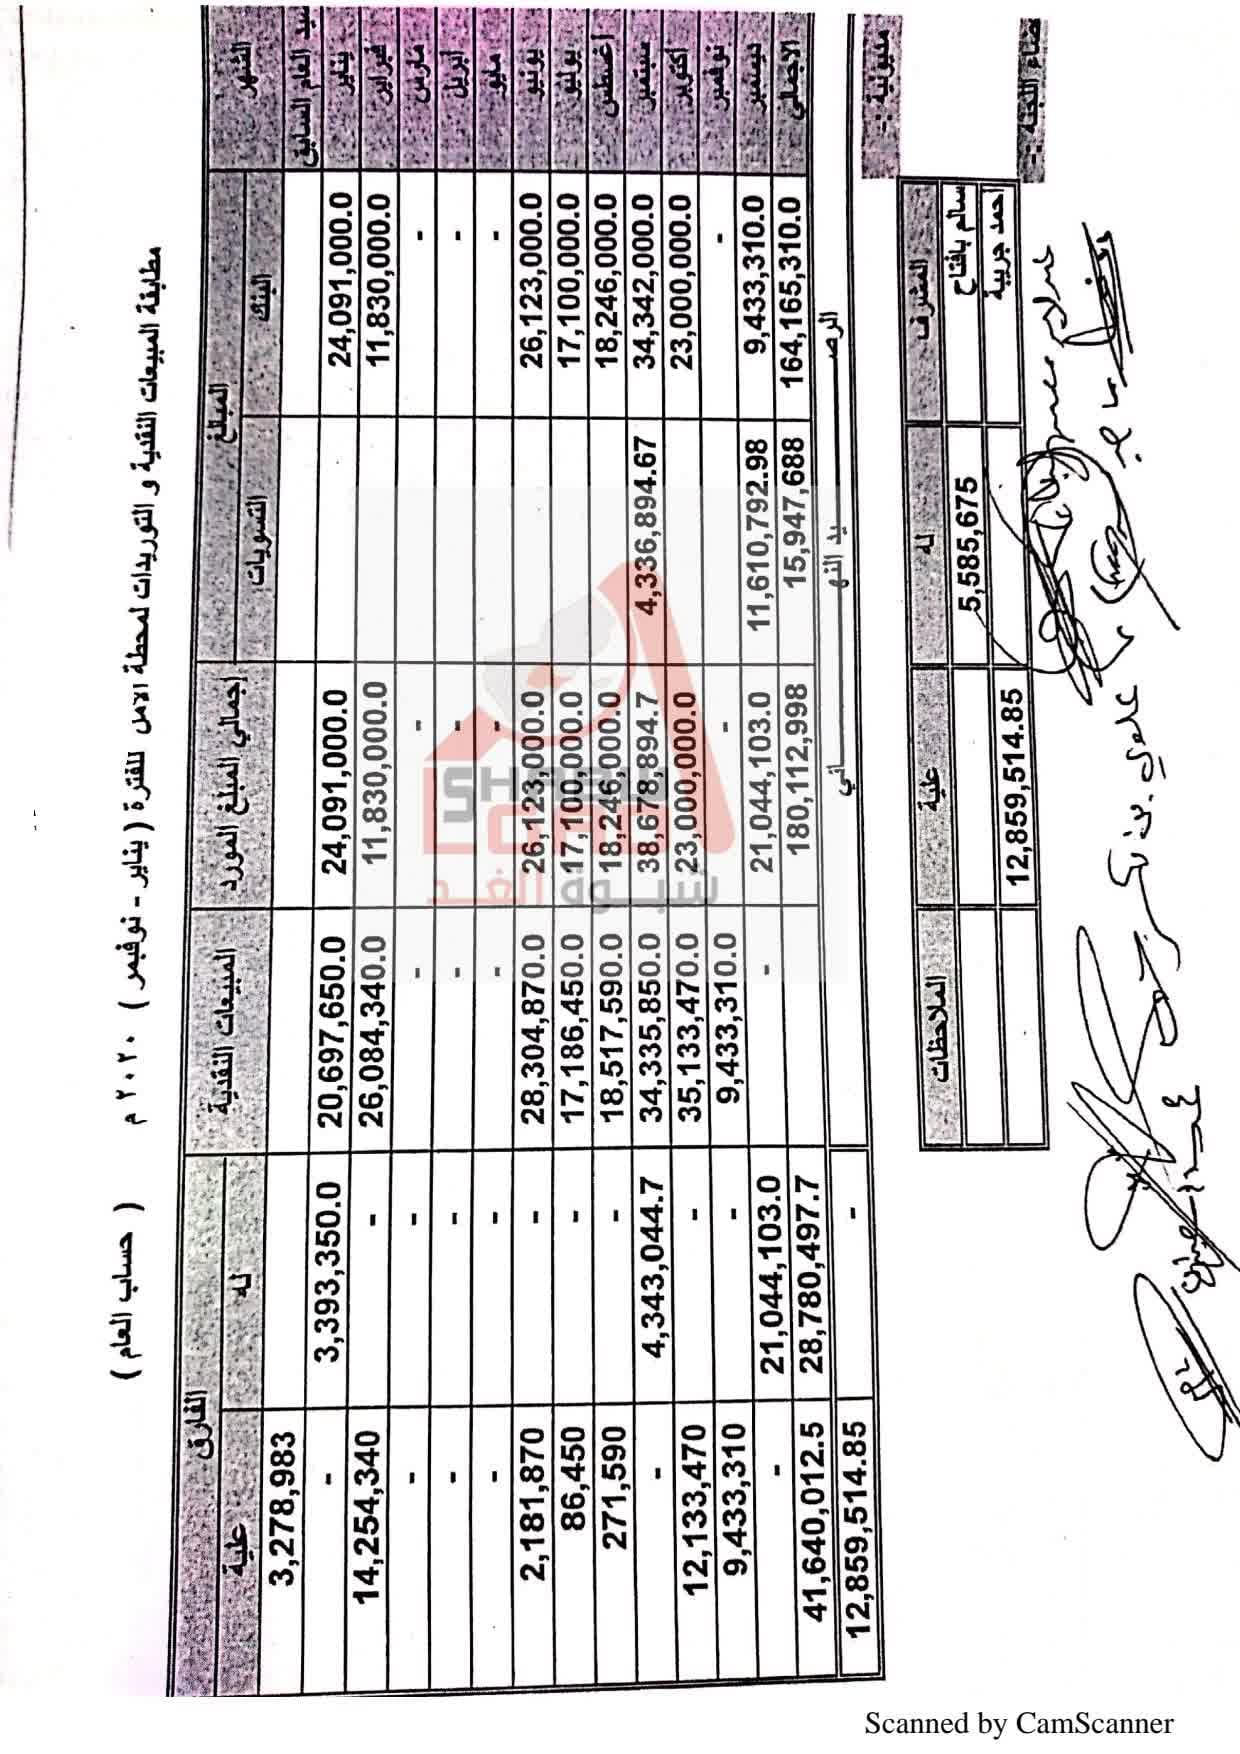 مطابقة المبيعات النقدية و التوريدات لمحطة الامل للفترة ( يناير - نوفمبر ) ٢٠٢٠ م ( حساب العام )
الشهر المبلغ إجمالي المبلغ المورد المبيعات النقدية الفارق
البنك التسويات له علية
العام السابق 3,278,983
يناير 24,091,000.0 24,091,000.0 20,697,650.0 3,393,350.0 -
فبراير 11,830,000.0 11,830,000.0 26,084,340.0 - 14,254,340
مارس - - - - -
أبريل - - - - -
مايو - - - - -
يونيو 26,123,000.0 26,123,000.0 28,304,870.0 - 2,181,870
يوليو 17,100,000.0 17,100,000.0 17,186,450.0 - 86,450
أغسطس 18,246,000.0 18,246,000.0 18,517,590.0 - 271,590
سبتمبر 34,342,000.0 4,336,894.67 38,678,894.7 34,335,850.0 4,343,044.7 -
أكتوبر 23,000,000.0 23,000,000.0 35,133,470.0 - 12,133,470
نوفمبر - - 9,433,310.0 - 9,433,310
ديسمبر 9,433,310.0 11,610,792.98 21,044,103.0 - 21,044,103.0 -
الاجمالي 164,165,310.0 15,947,688 180,112,998 28,780,497.7 41,640,012.5
الرصـــــيد النهـــــــائي - 12,859,514.85
مديونية :-
المشرف له علية الملاحظات
سالم بافتاح 5,585,675
احمد جريبة 12,859,514.85
اللجنة :-
SHABWA
ALGHAD
شبوة الغد
Scanned by CamScanner